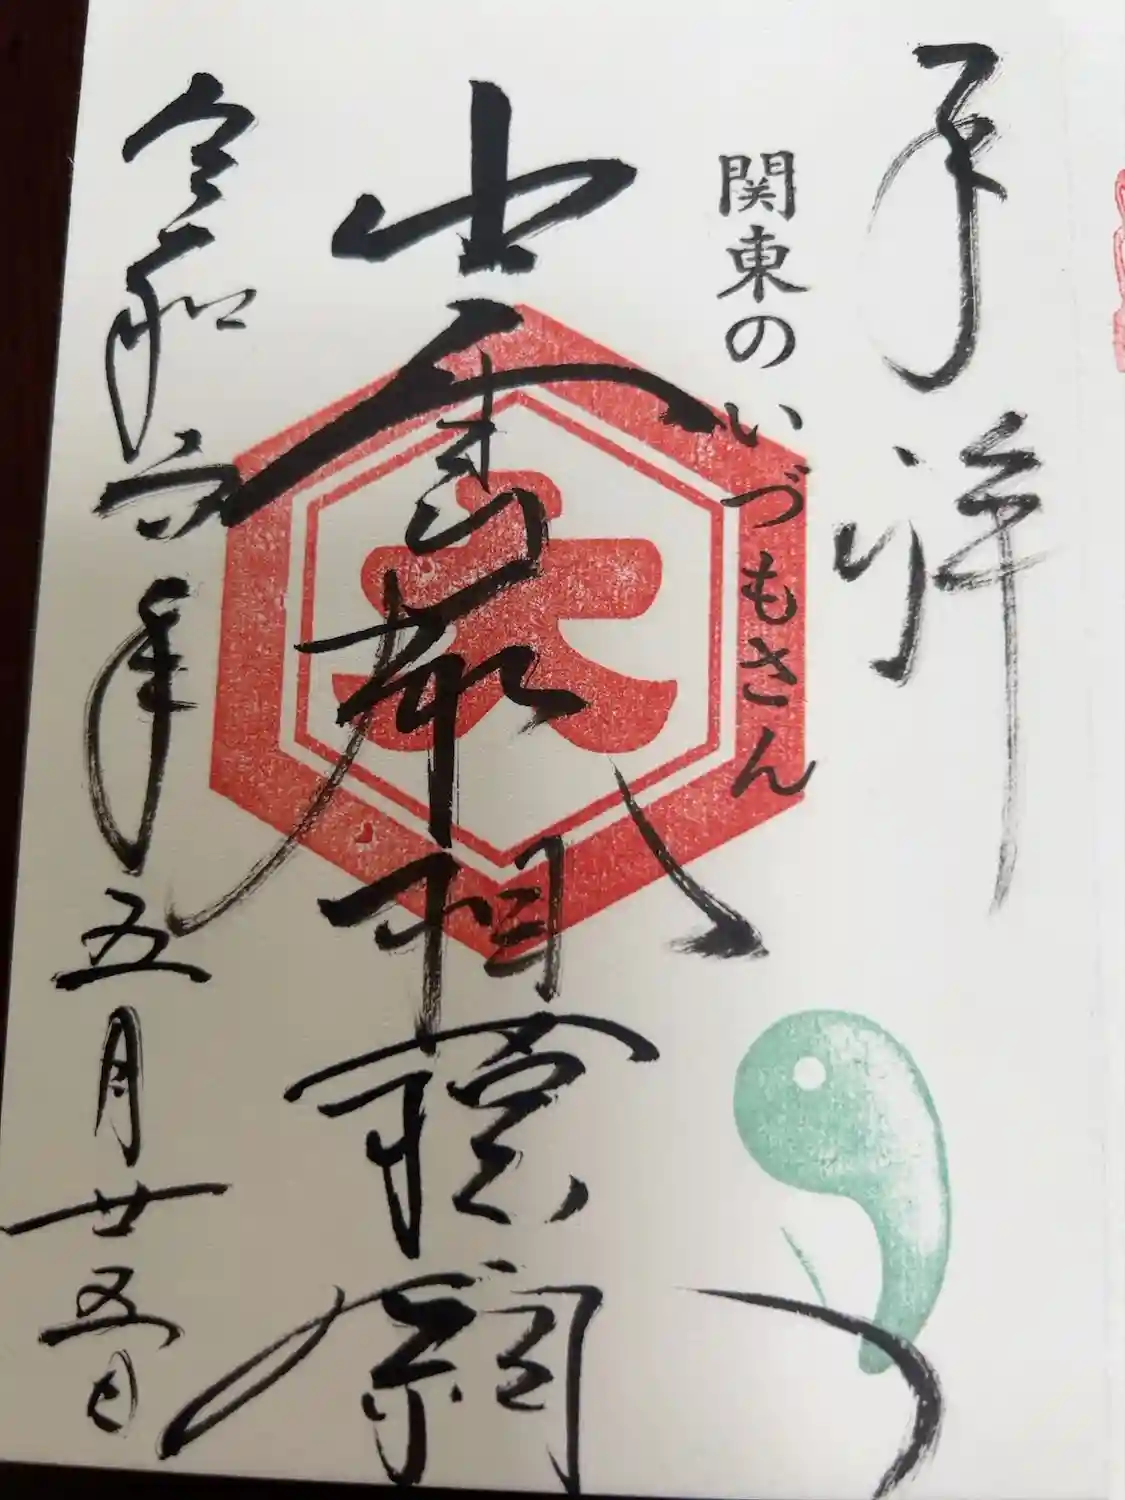 奉拝
関東のいづもさん
出雲大社相模分祠
令和六年五月廿五日